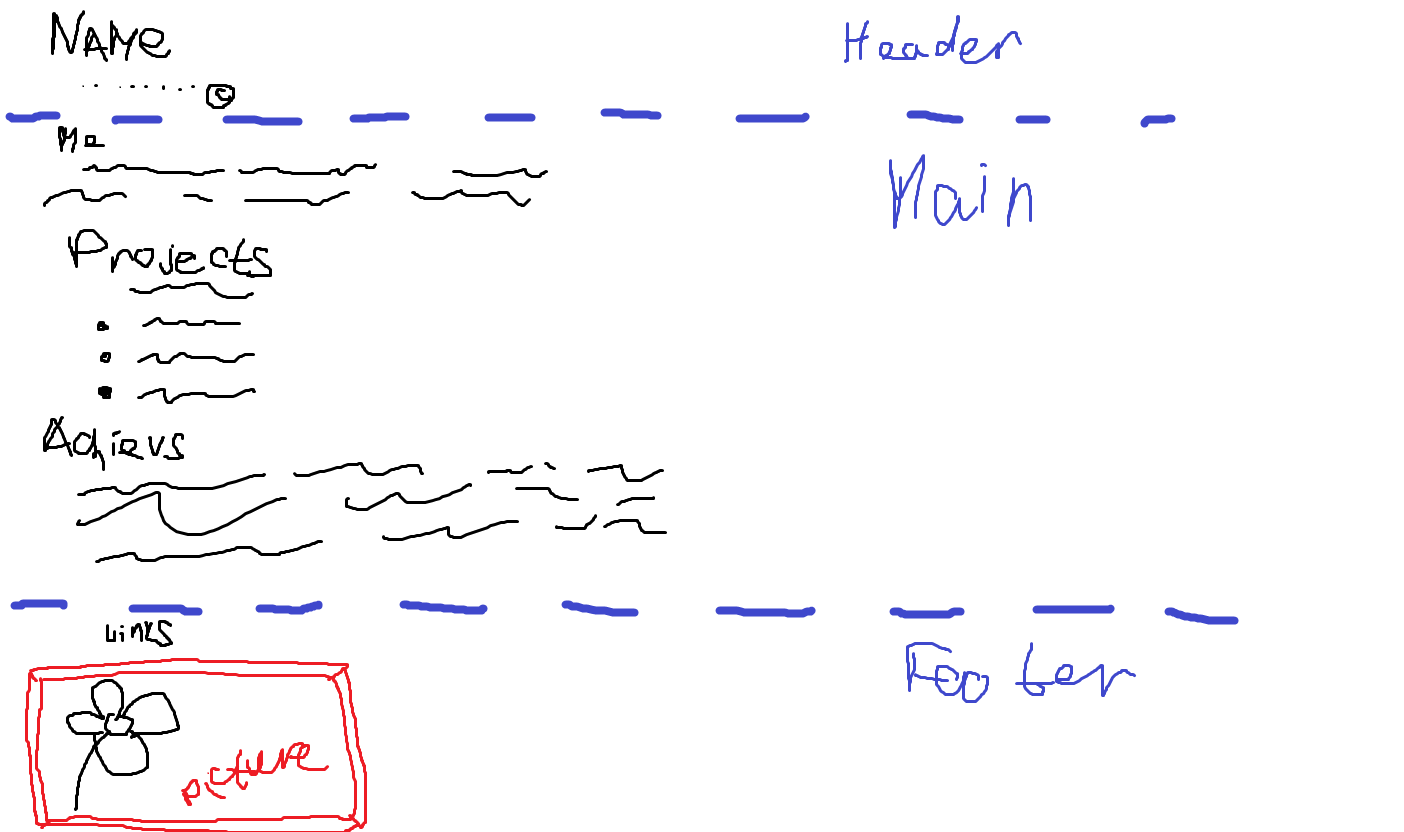 NAMe
Header
©
Me
Main
Projects
Achievs
Links
Footer
picture